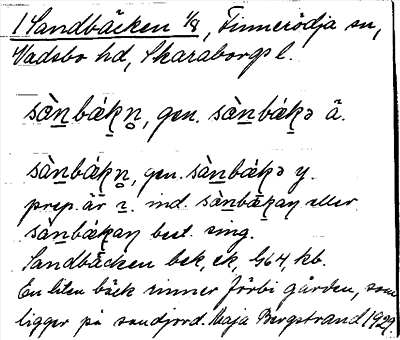 1 Sandbäcken 1/8, Finnerödja sn,
Vadsbo hd, Skaraborgs l.
sànbákn̥, gen. sànbákə ä.
sànbákn̥, gen. sànbákə y.
prep. är i. ind. sànbákaŋ eller
sànbákaŋ best. sing.
Sandbäcken bek, ek, G64, kb.
En liten bäck rinner förbi gården, som
ligger på sandjord. Maja Bergstrand 1929.